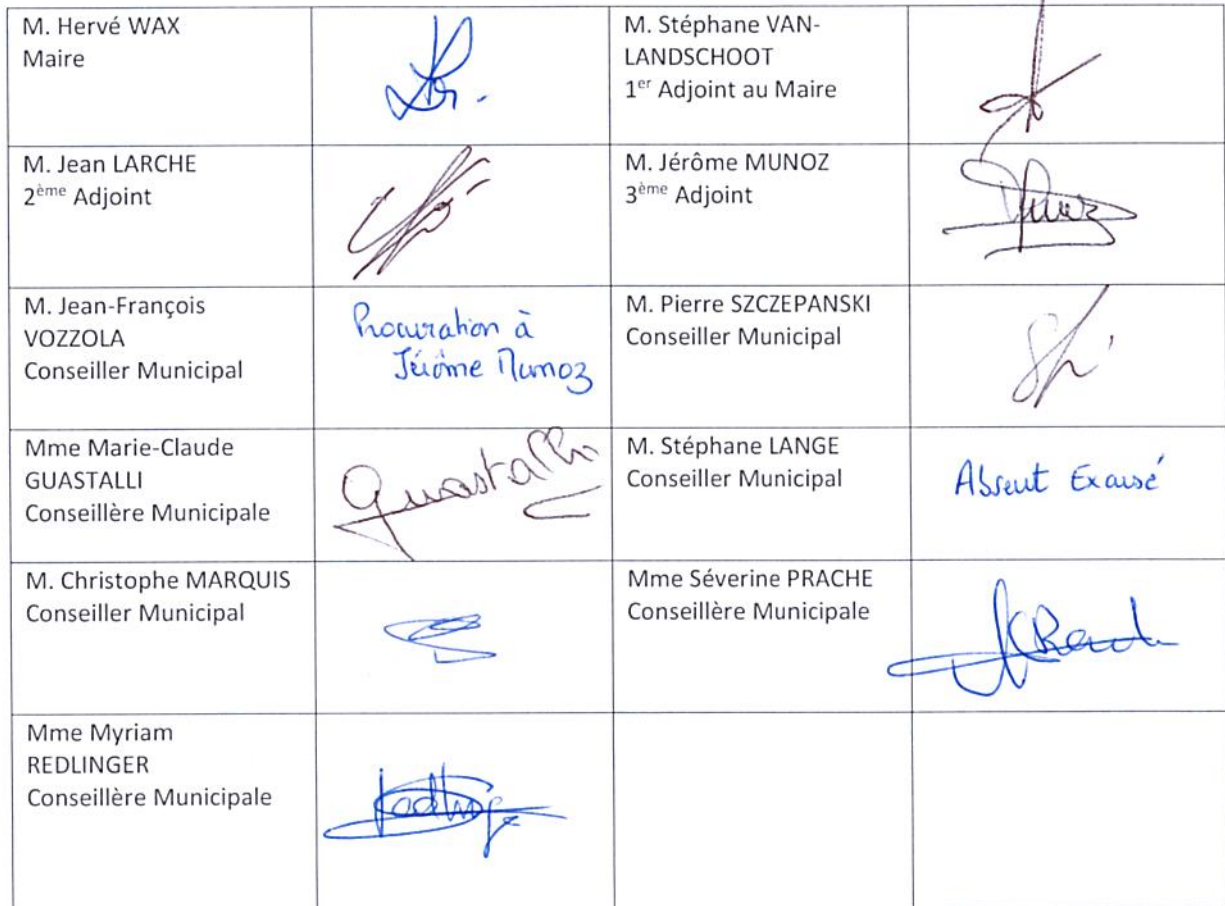 M. Hervé WAX
Maire
M. Stéphane VAN-
LANDSCHOOT
1er Adjoint au Maire
M. Jean LARCHE
2ème Adjoint
M. Jérôme MUNOZ
3ème Adjoint
Munoz
M. Jean-François
VOZZOLA
Conseiller Municipal
Procuration à
Jérôme Munoz
M. Pierre SZCZEPANSKI
Conseiller Municipal
Mme Marie-Claude
GUASTALLI
Conseillère Municipale
Guastalli
M. Stéphane LANGE
Conseiller Municipal
Absent Excusé
M. Christophe MARQUIS
Conseiller Municipal
Mme Séverine PRACHE
Conseillère Municipale
Mme Myriam
REDLINGER
Conseillère Municipale